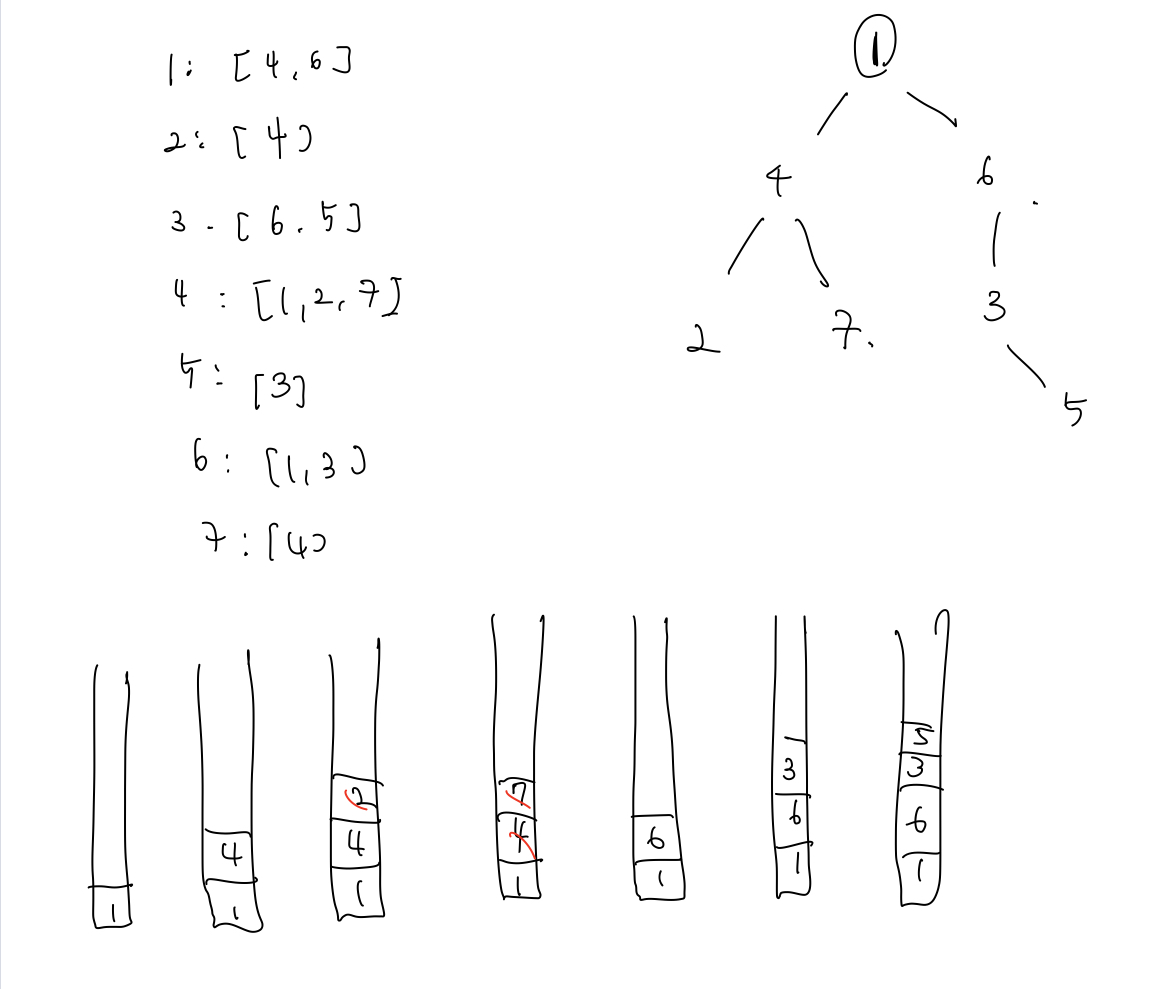 1: [4,6]
2: [4)
3. [6.5]
4: [1,2,7]
5: [3]
6: [1,3)
7: [4)
1.
4 6.
2 7. 3
5
1
4
1
2
4
1
7
4
1
6
1
3
6
1
5
3
6
1